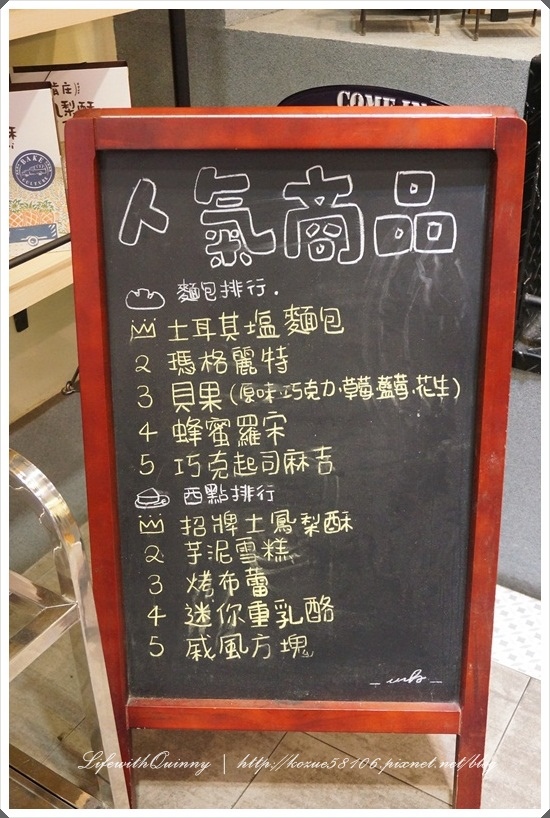 COME IN
梨酥
酥
BAKE
人氣商品
麵包排行.
土耳其塩麵包
2 瑪格麗特
3 貝果(原味.巧克力.草莓.藍莓.花生)
4 蜂蜜羅宋
5 巧克起司麻吉
西點排行
招牌土鳳梨酥
2 芋泥雪糕
3 烤布蕾
4 迷你重乳酪
5 戚風方塊
LifewithQuinny | http://kozue58106.pixnet.net/blog